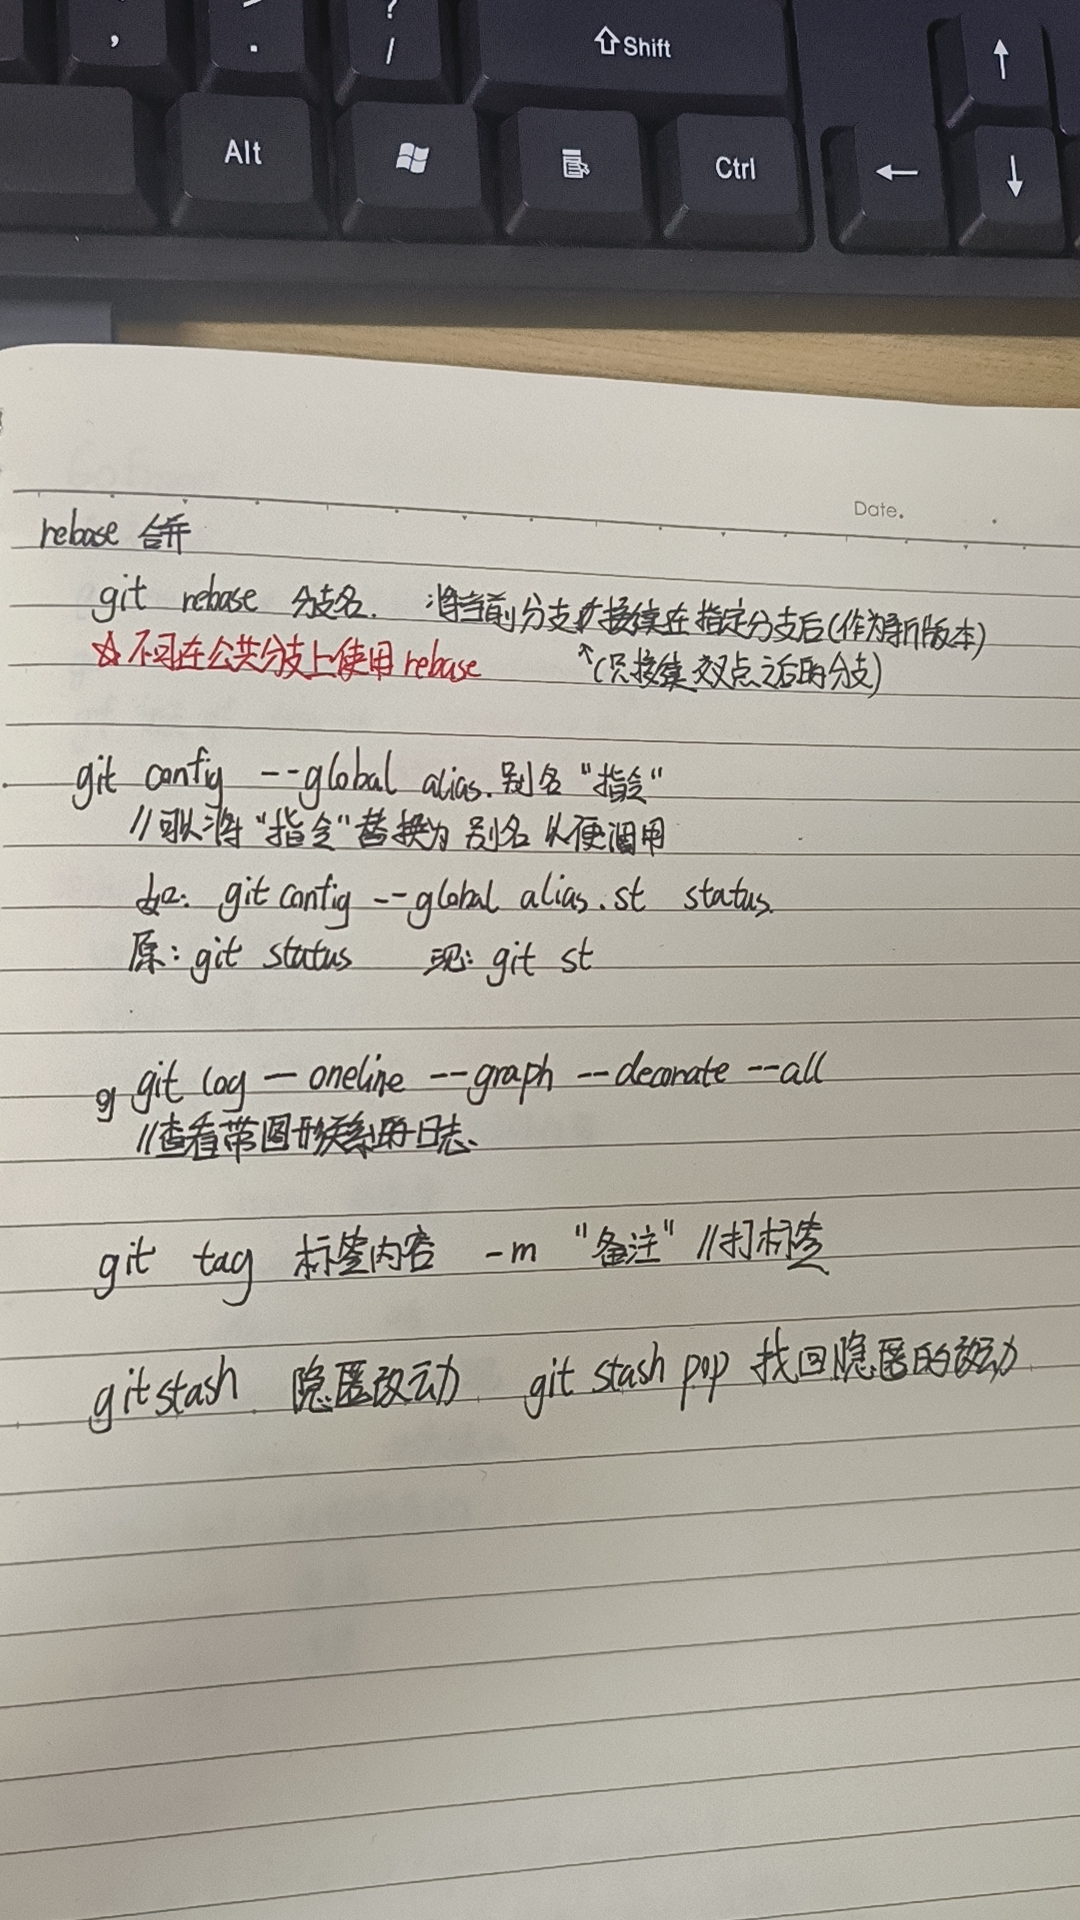 , . ? / ⇧Shift ↑
Alt Ctrl ← ↓
Date.
rebase 合并
git rebase 分支名. 将当前分支接续在指定分支后(作为新版本)
☆不可在公共分支上使用rebase ↑(只接续交叉点之后的分支)
git config --global alias.别名 "指令"
//可以将"指令"替换为别名以便调用
如: git config --global alias.st status.
原: git status 现: git st
git log — oneline --graph --decorate --all
//查看带图形关系的日志、
git tag 标签内容 -m "备注" //打标签
git stash 隐匿改动 git stash pop 找回隐匿的改动